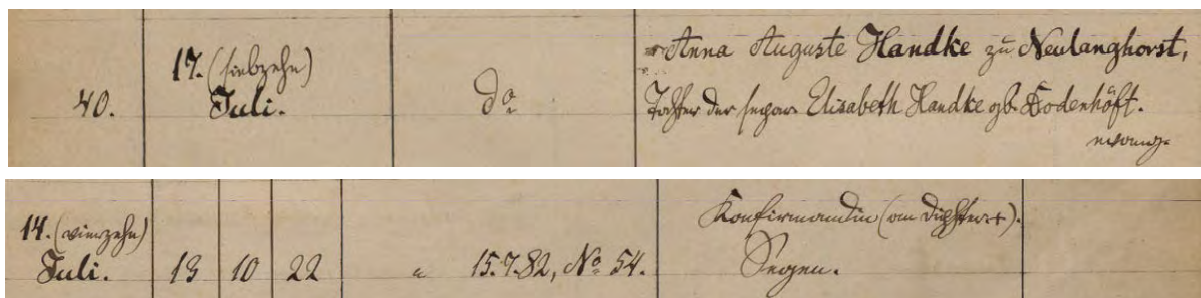 17. (siebzehn)
40.
Juli.
do
Anna Auguste Handke zu Neulanghorst,
Tochter der separ. Elisabeth Handke gb. Bodenhöft.
evang.
14. (vierzehn)
Juli.
13
10
22
" 15.7.82, No 54.
Konfirmandin (an Diphtherit).
Segen.